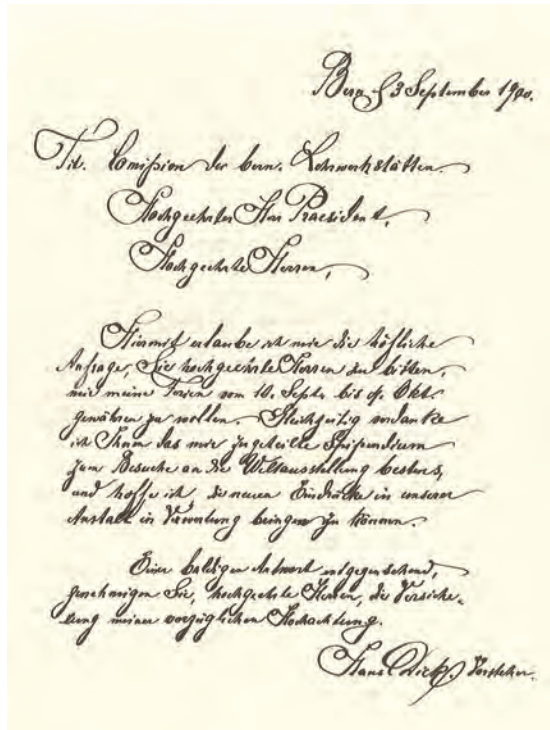 Bern d. 3 September 1900.
Tit. Comission der bern. Lehrwerkstätten.
Hochgeehrter Herr Praesident,
Hochgeehrte Herren,
Hiermit erlaube ich mir die höfliche
Anfrage, Sie hochgeehrte Herren zu bitten,
mir meine Ferien vom 10. Septr. bis 4. Okt.
gewähren zu wollen. Gleichzeitig verdanke
ich Ihnen das mir zugeteilte Stipendium
zum Besuche an die Weltausstellung bestens,
und hoffe ich, die neuen Eindrücke in unserer
Anstalt in Verwendung bringen zu können.
Einer baldigen Antwort entgegensehend,
genehmigen Sie, hochgeehrte Herren, die Versiche-
rung meiner vorzüglichen Hochachtung.
Hans Dick, Vorsteher.